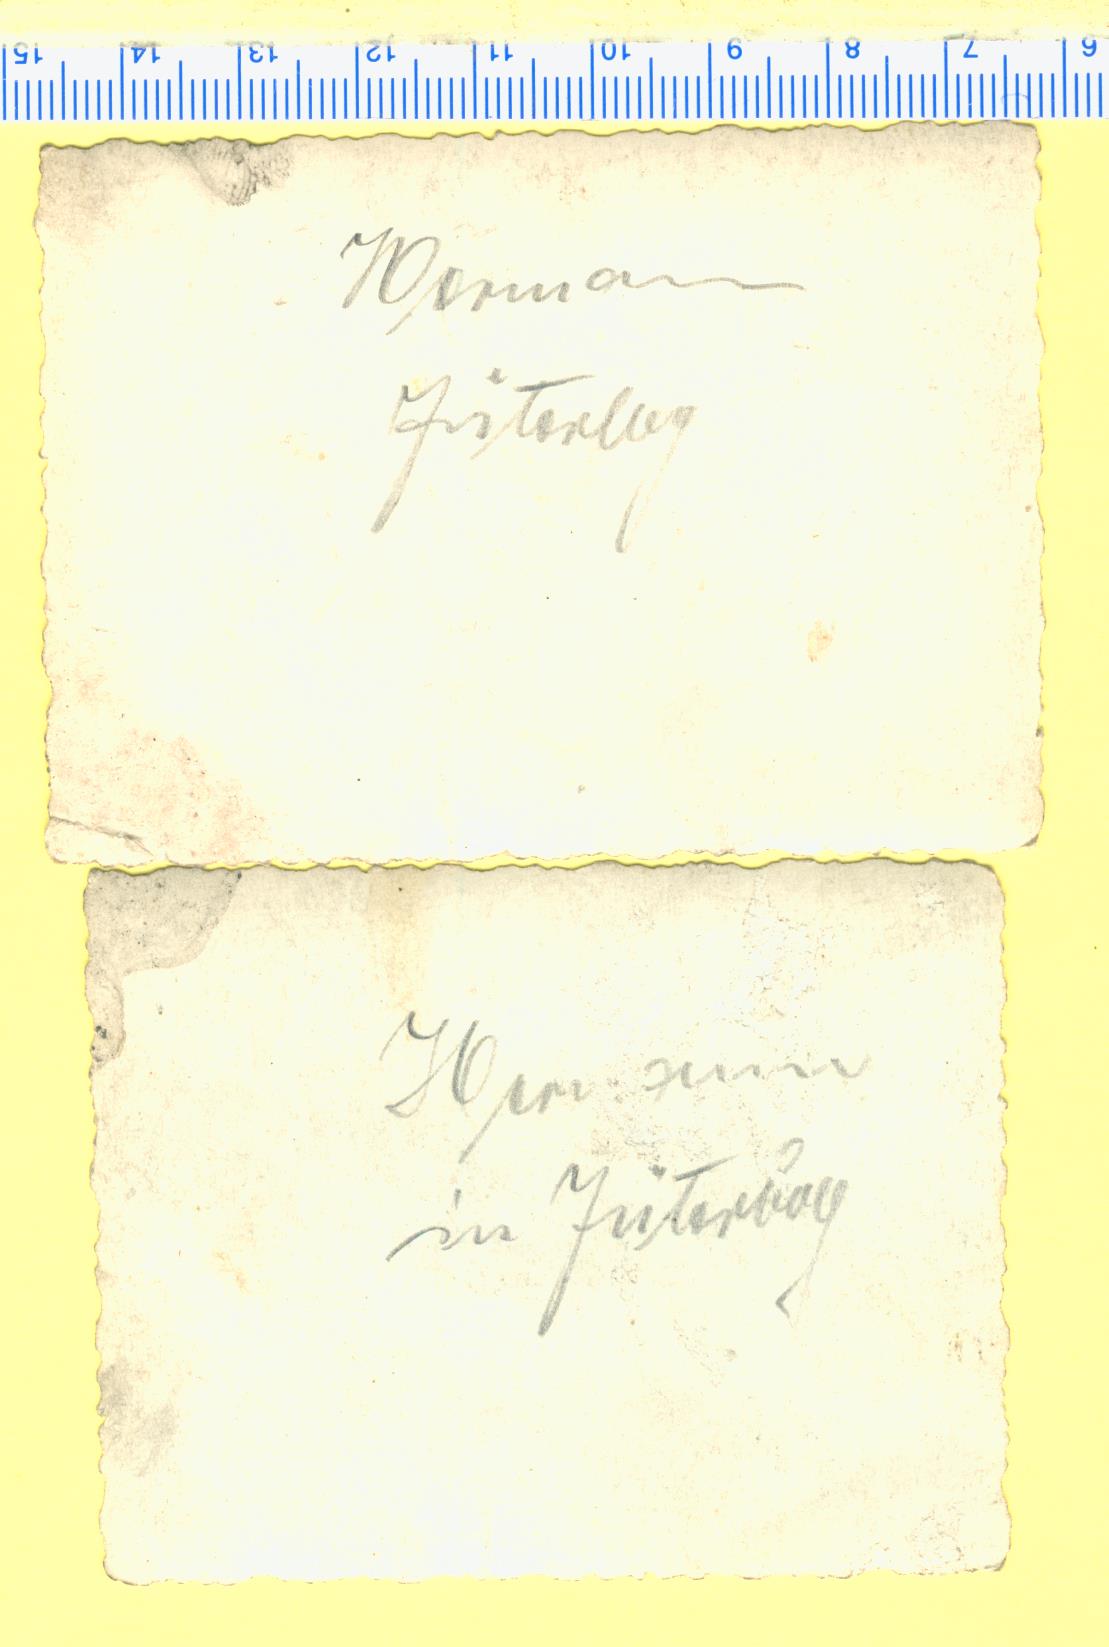 15 14 13 12 11 10 9 8 7 6
Hermann
Jüterbog
Hermann
in Jüterbog